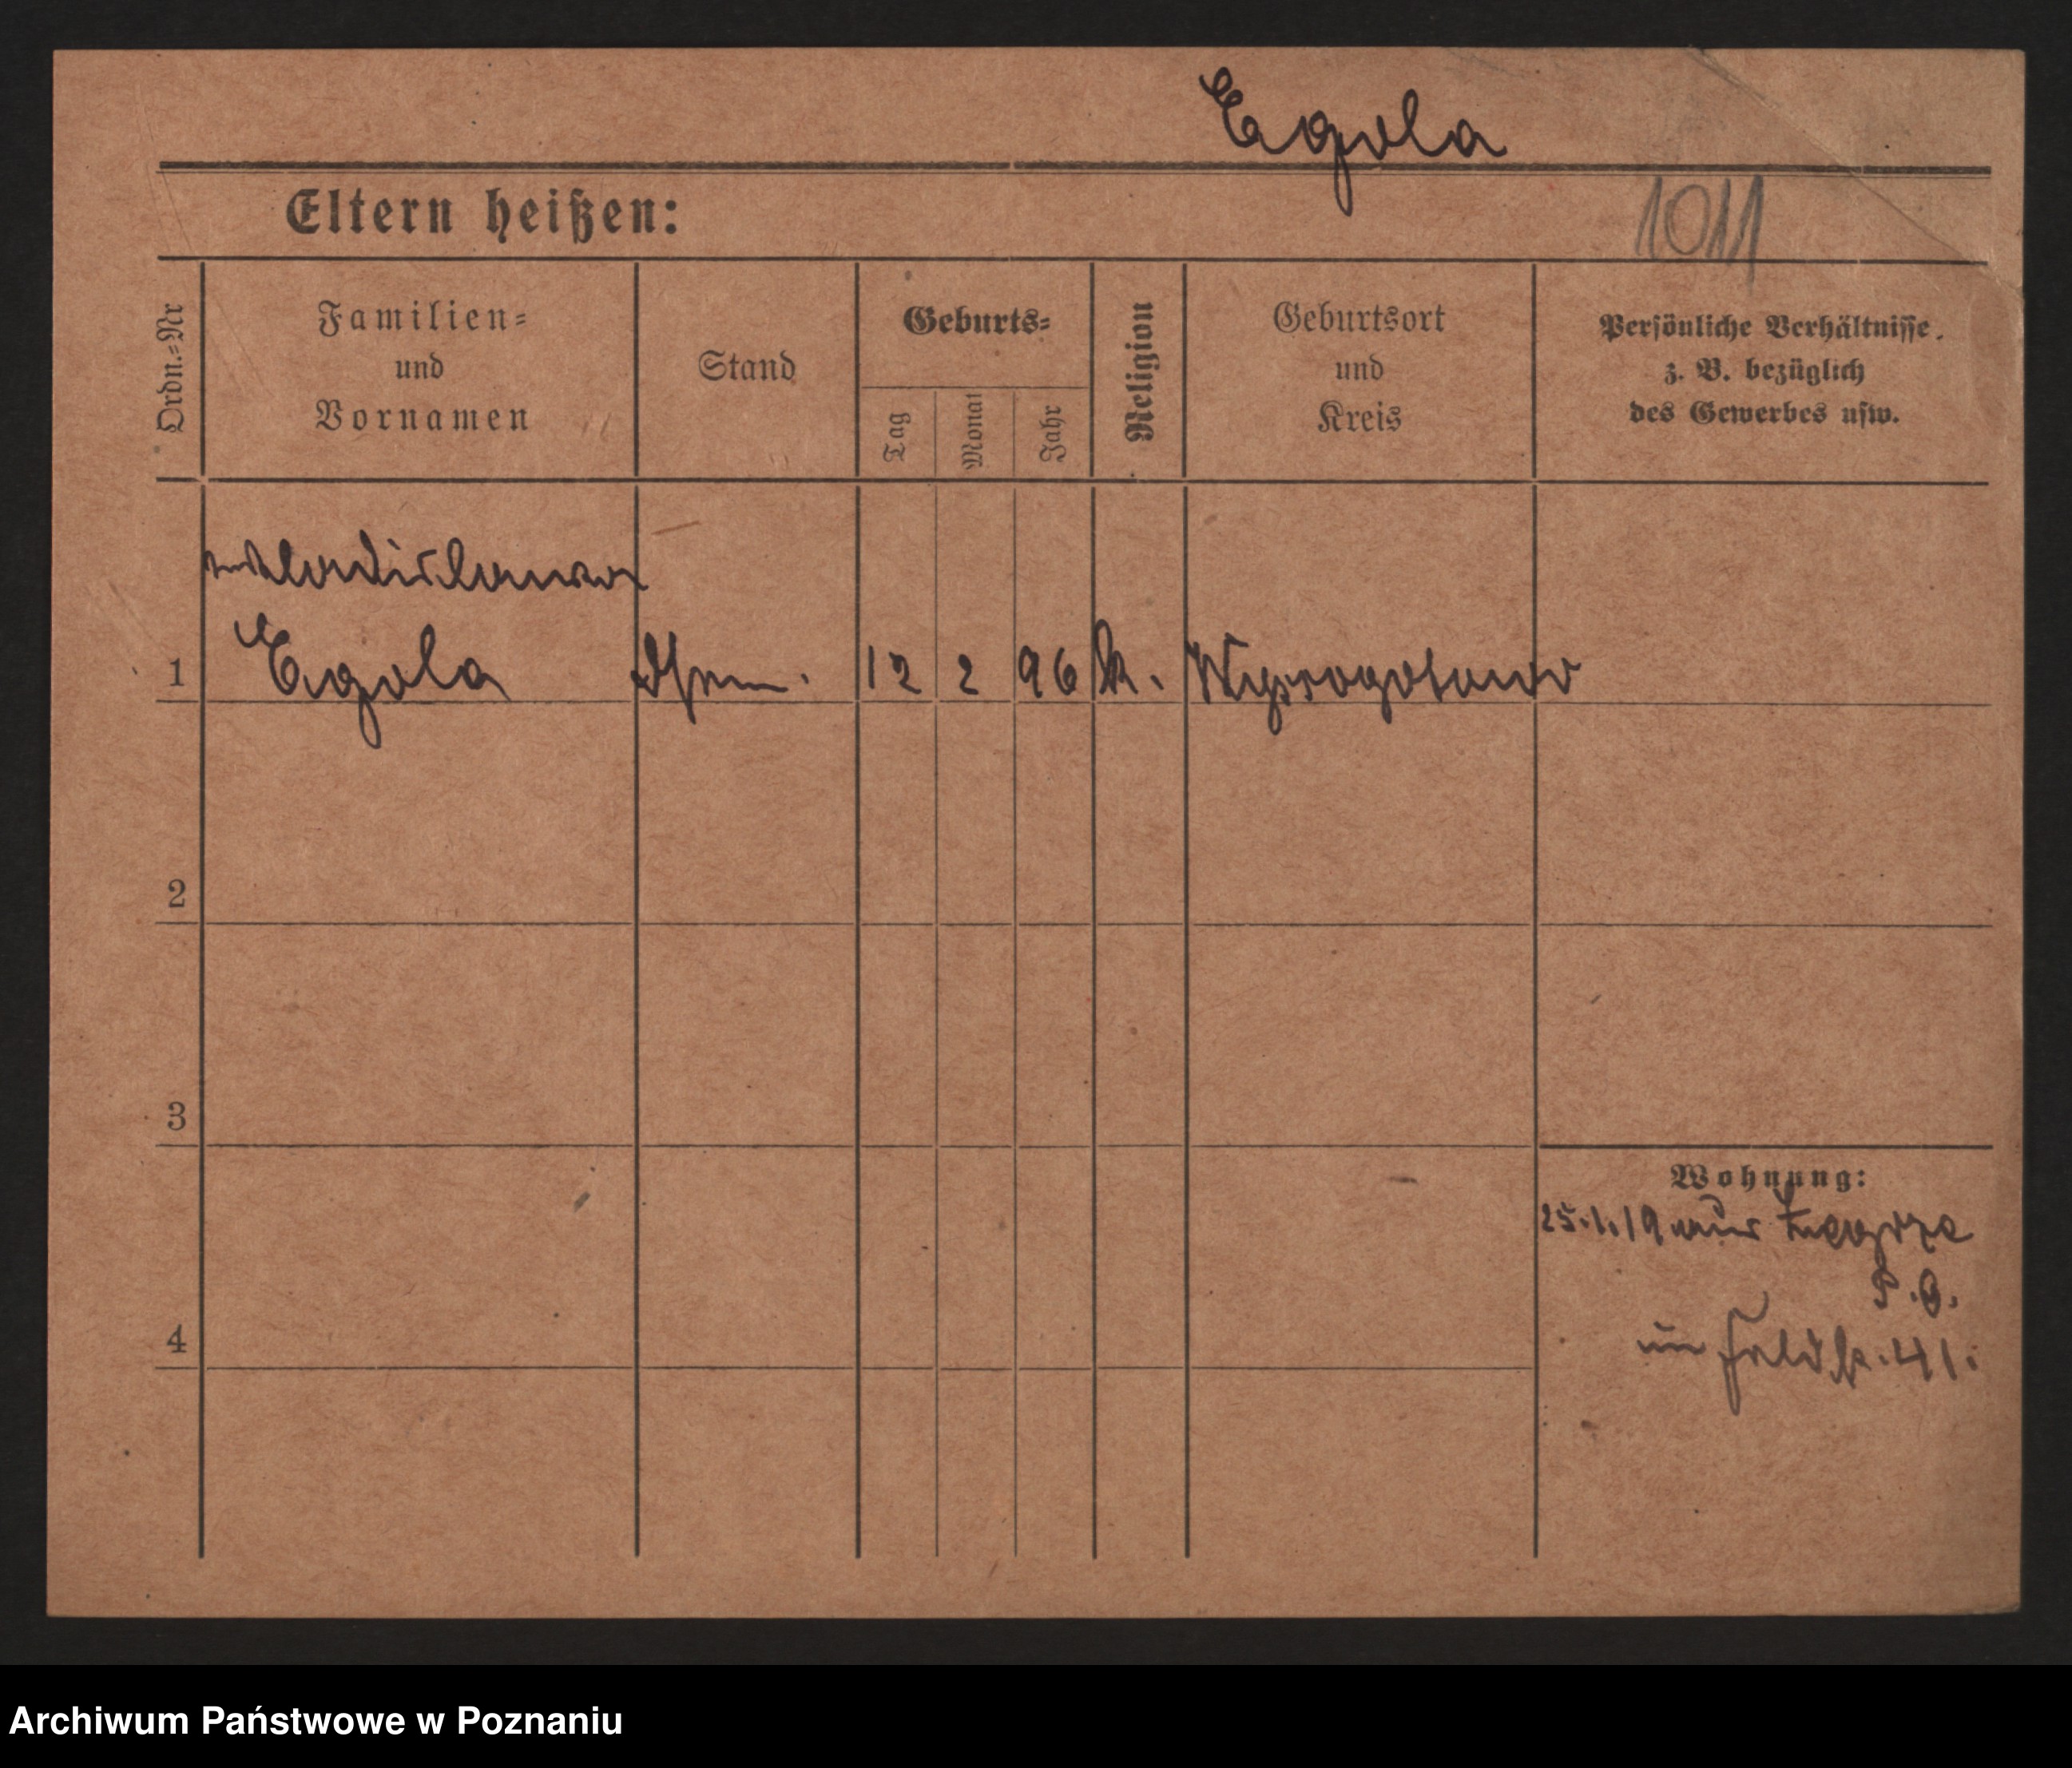 Egola
Eltern heißen:
1011
Ordn.=Nr
Familien=
und
Vornamen
Stand
Geburts=
Tag
Monat
Jahr
Religion
Geburtsort
und
Kreis
Persönliche Verhältnisse.
z. B. bezüglich
des Gewerbes usw.
Wladislawa
1 Egola 12 2 96 k.
2
3
Wohnung:
25.1.19 aus Zegrze
P. O.
4
im Feldst. 41.
Archiwum Państwowe w Poznaniu